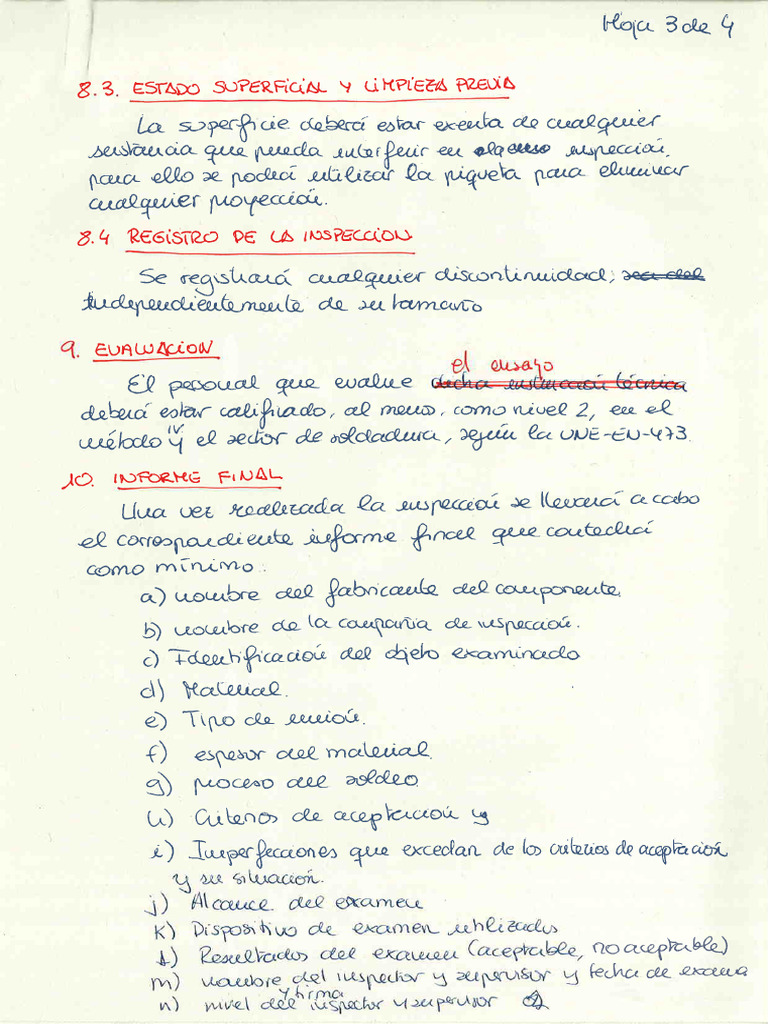 Hoja 3 de 4
8.3. ESTADO SUPERFICIAL Y LIMPIEZA PREVIA
La superficie deberá estar exenta de cualquier
sustancia que pueda interferir en la inspección,
para ello se podrá utilizar la piqueta para eliminar
cualquier proyección.
8.4 REGISTRO DE LA INSPECCION
Se registrará cualquier discontinuidad;
independientemente de su tamaño
9. EVALUACION
el ensayo
El personal que evalue dicha instrucción técnica
deberá estar calificado, al menos, como nivel 2, en el
método IV y el sector de soldadura, según la UNE-EN-473.
10. INFORME FINAL
Una vez realizada la inspección se llevará a cabo
el correspondiente informe final que contedrá
como mínimo:
a) nombre del fabricante del componente.
b) nombre de la compañia de inspección.
c) Identificación del objeto examinado
d) Material.
e) Tipo de unión.
f) espesor del material.
g) proceso del soldeo
h) Criterios de aceptación y
i) Imperfecciones que excedan de los criterios de aceptación
y su situación.
j) Alcance del examen
k) Dispositivo de examen utilizados
l) Resultados del examen (aceptable, no aceptable)
m) nombre del inspector y supervisor y fecha de exama
y firma
n) nivel del inspector y supervisor